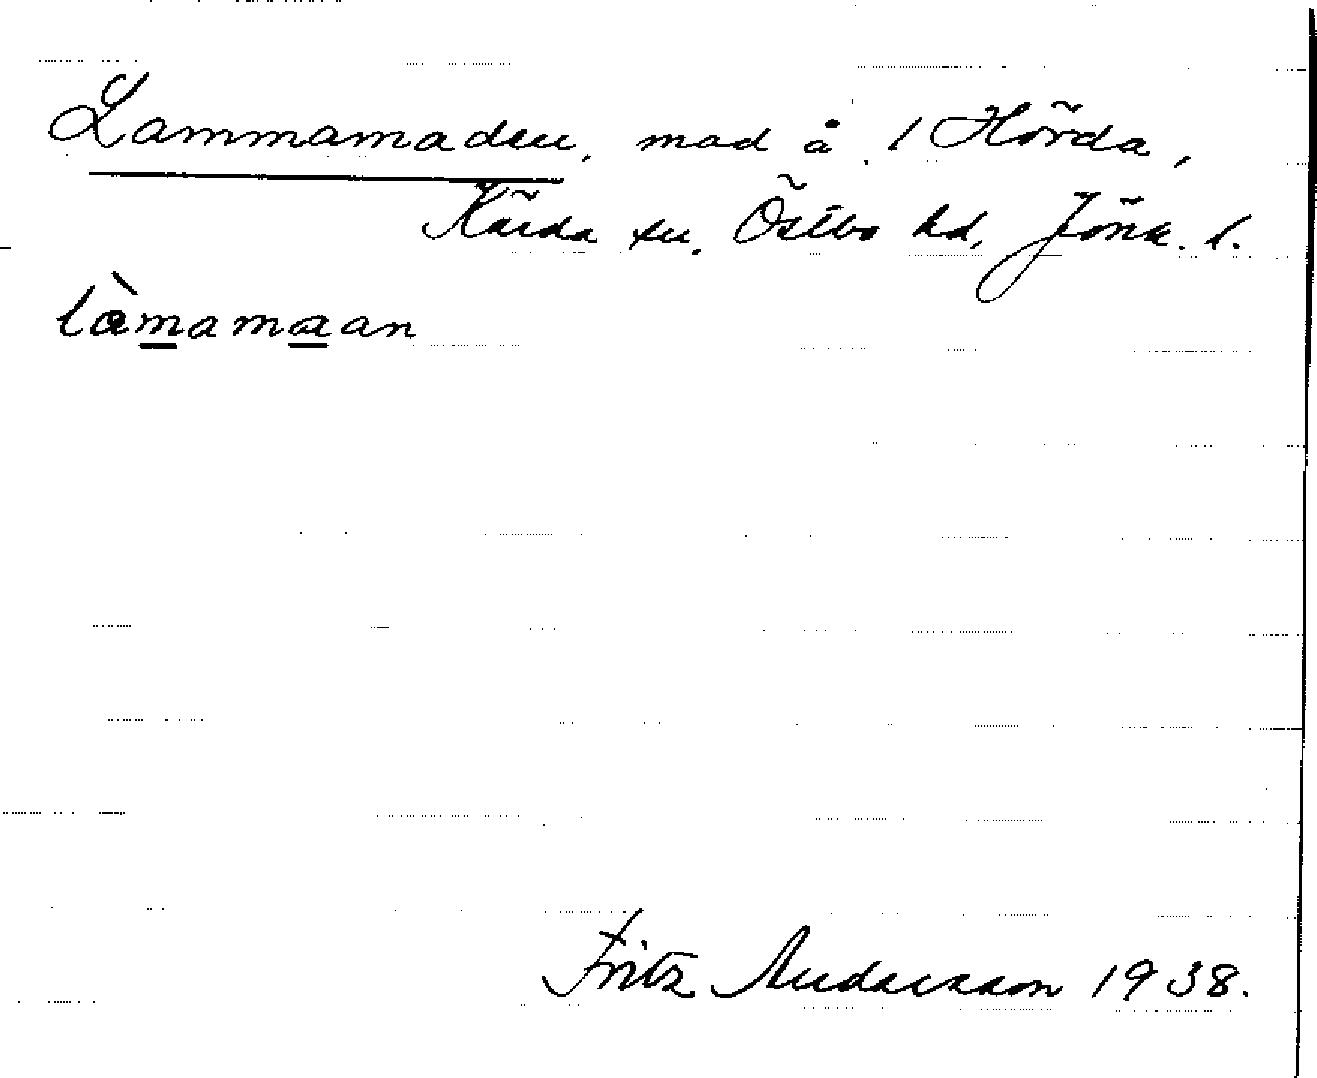 Lammamaden, mad å 1 Hörda,
Kärda sn, Östbo hd, Jönk. l.
làmamaan
Fritz Andersson 1938.